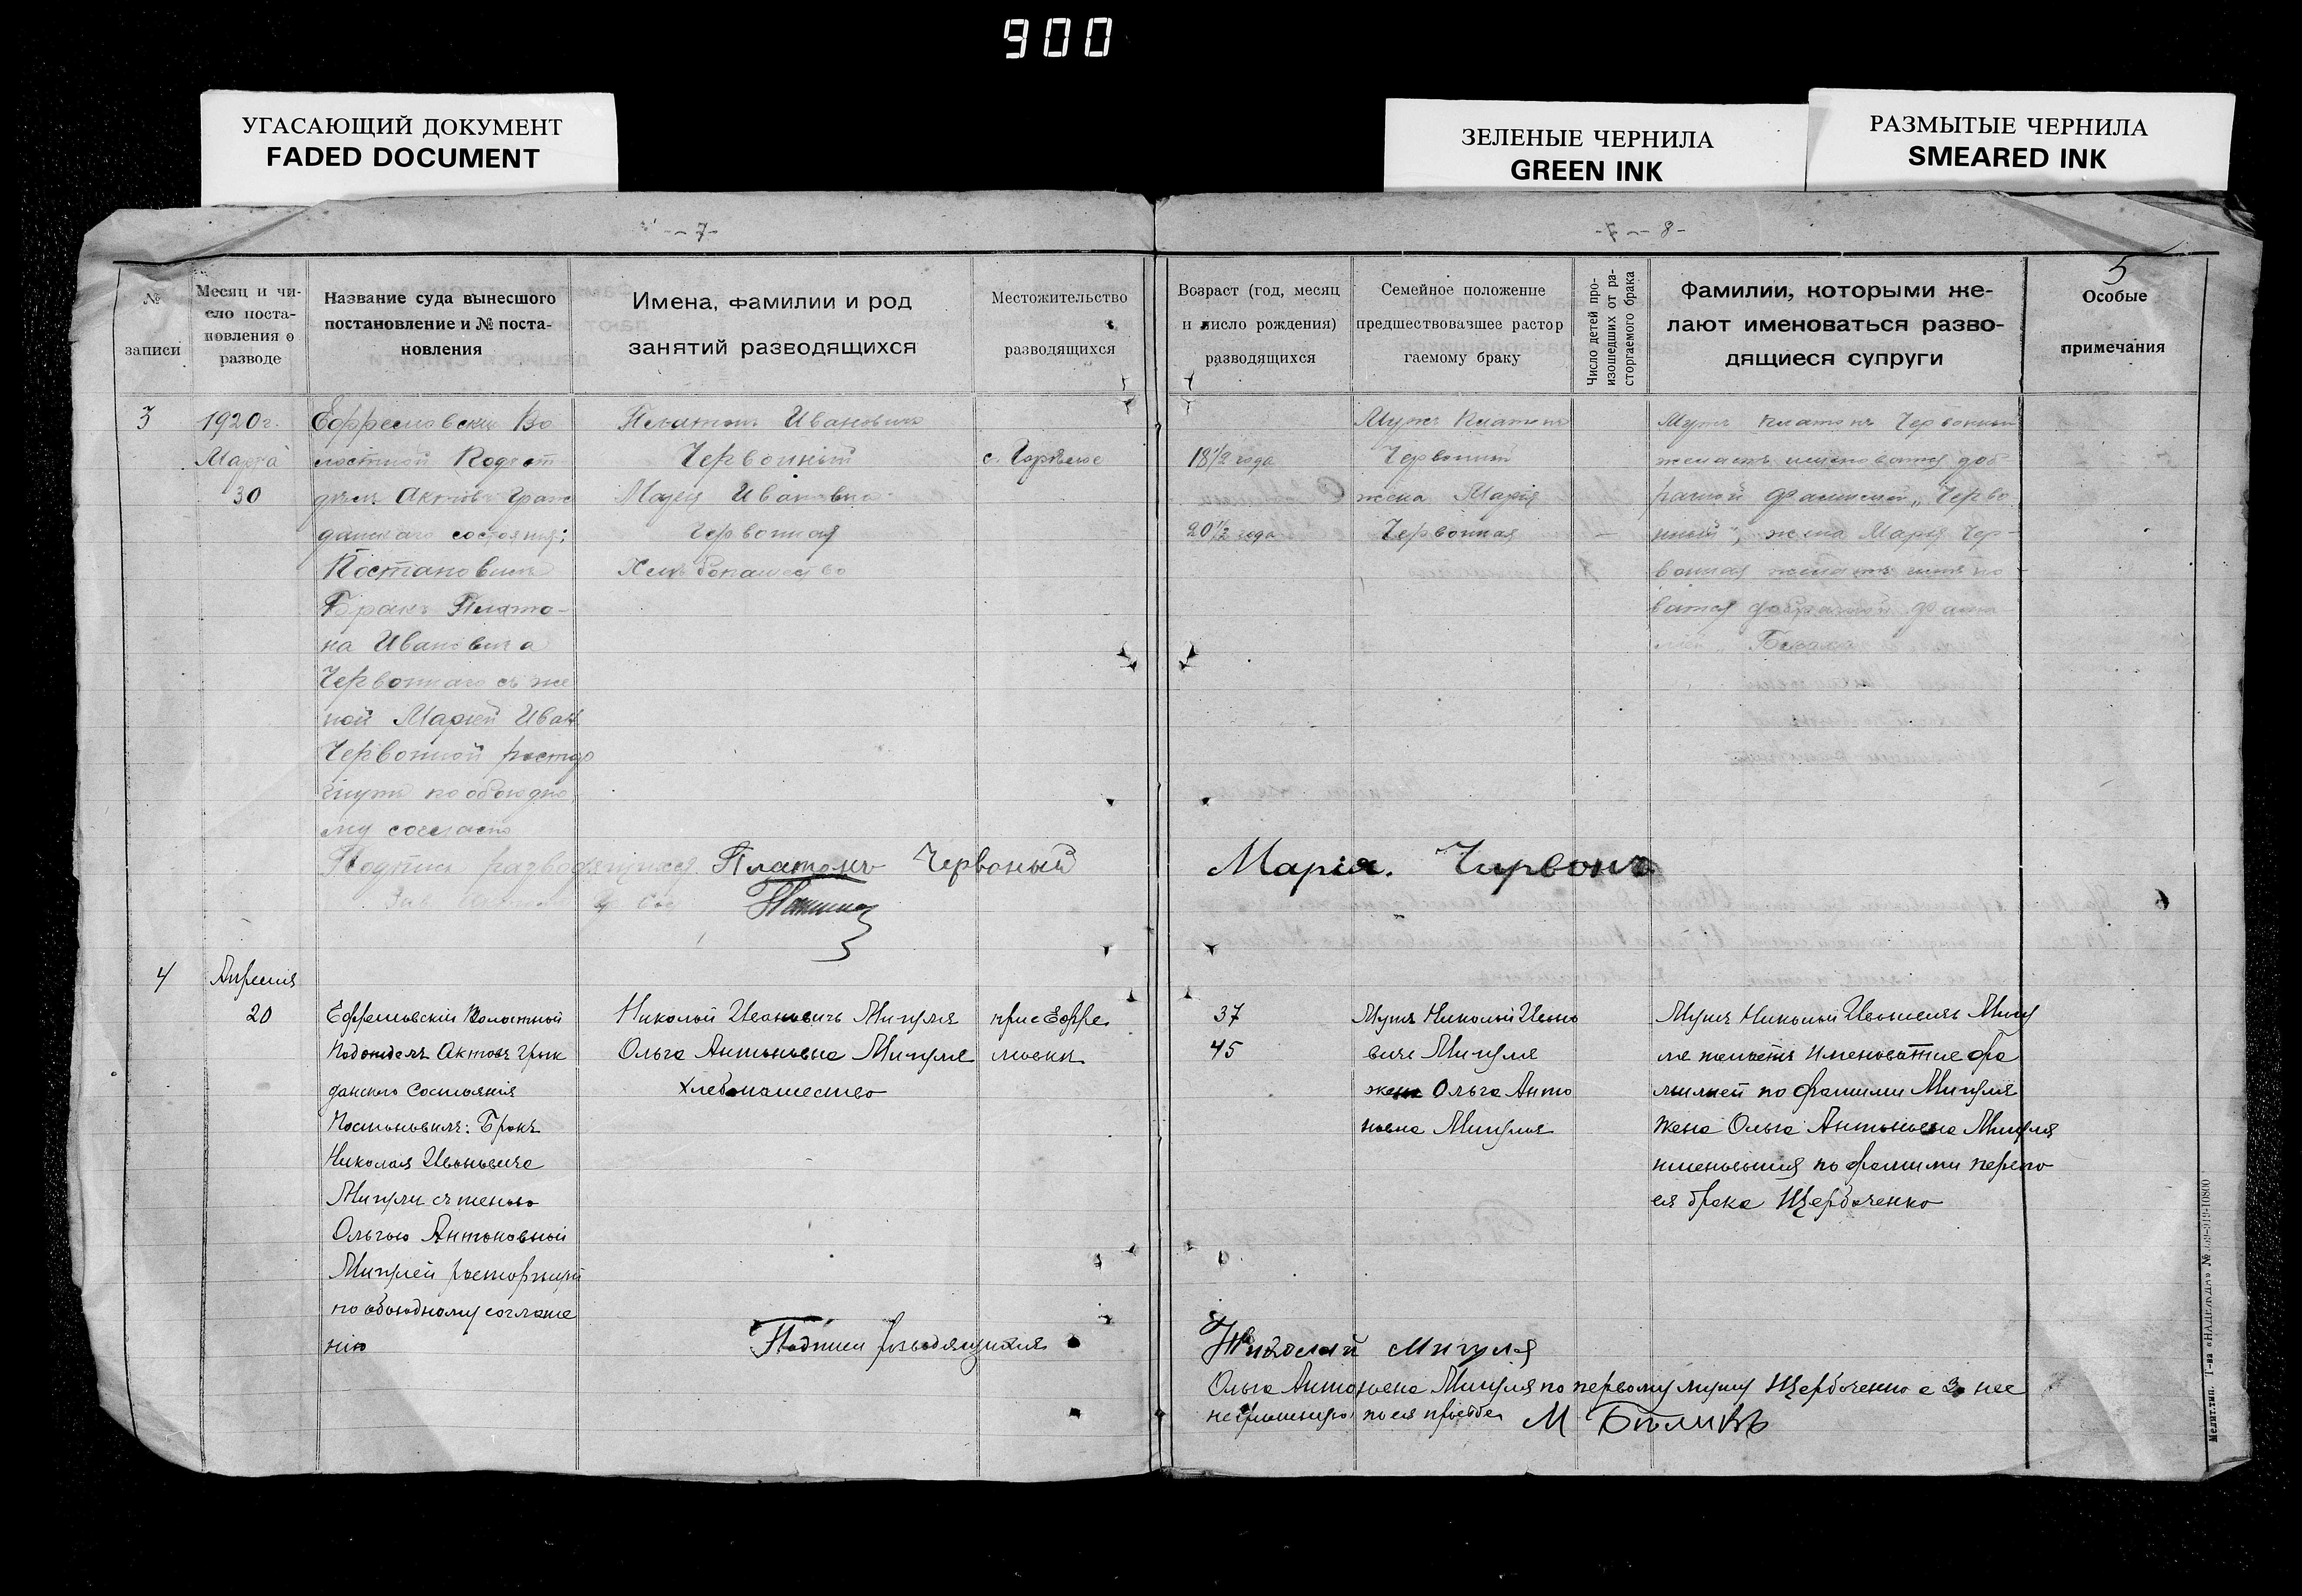 900
УГАСАЮЩИЙ ДОКУМЕНТ
FADED DOCUMENT
ЗЕЛЕНЫЕ ЧЕРНИЛА
GREEN INK
РАЗМЫТЫЕ ЧЕРНИЛА
SMEARED INK
-7-
-7-8-
5
№
записи
Месяц и чи-
сло поста-
новления о
разводе
Название суда вынесшого
постановление и № поста-
новления
Имена, фамилии и род
занятий разводящихся
Местожительство
разводящихся
Возраст (год, месяц
и число рождения)
разводящихся
Семейное положение
предшествовавшее растор
гаемому браку
Число детей про-
изошедших от ра-
сторгаемого брака
Фамилии, которыми же-
лают именоваться разво-
дящиеся супруги
Особые
примечания
3
1920г.
Марта
30
Ефремовский Во
лостной Подот
делъ Актовъ Граж
данскаго состояния;
Постановилъ
Бракъ Плато-
на Ивановича
Червоннаго съ же
ной Марией Иван
Червонной растор
гнуть по обоюдно
му согласию
Платонъ Ивановичъ
Червонный
Мария Ивановна
Червонная
Хлебопашество
с.
18 1/2 года
20 1/2 года
Мужъ Платонъ
Червонный
жена Мария
Червонная
—
Мужъ Платонъ Червонный
желаетъ именоватся доб
рачной фамилией „Черво
нный", жена Мария Чер-
вонная желаетъ имено
ватся добрачной фами
лией
Подписи разводящихся Платонъ Червоный
Марія. Чирвонъ
4
Апреля
20
Ефремовскій Волостной
Подотделъ Актовъ Граж
данскаго Состоянія
Постановилъ: Бракъ
Николая Ивановича
Мигули съ женою
Ольгою Антоновной
Мигулей расторгнутъ
по обоюдному соглаше
нію
Николай Ивановичъ Мигуля
Ольга Антоновна Мигуля
Хлебопашество
прис Ефре
мовки
37
45
Мужъ Николай Ивано
вичъ Мигуля
жена Ольга Анто
новна Мигуля
Мужъ Николай Ивановичъ Мигу
ля желаетъ Именоватся фа
милией по фамилии Мигуля
Жена Ольга Антоновна Мигуля
именоватся по фамилии перваго
ея брака Щербаченко
Подписи разводящихся
Николай Мигуля
Ольга Антоновна Мигуля по первому мужу Щербаченко а За нее
неграмотную по ея просьбе М
Мелит.тип. Т-ва «НАДЕЖДА» №